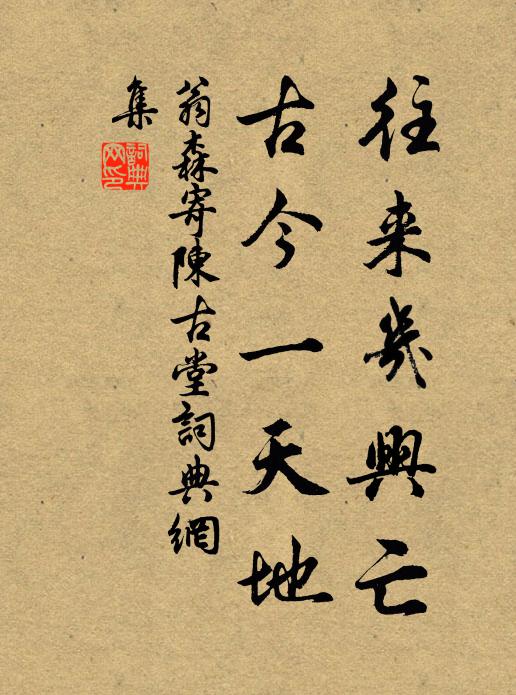 往来幾興亡
古今一天地
翁森寄陳古堂詞典網
集
詞典網印